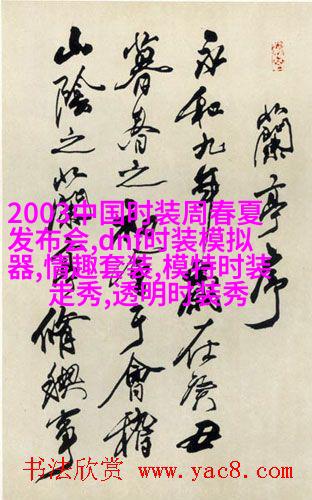 蘭亭序
永和九年歲在癸丑
暮春之于會稽
山陰之蘭脩禊事
2003中国时装周春夏
发布会,dnf时装模拟
器,情趣套装,模特时装
走秀,透明时装秀
书法欣赏 www.yac8.com